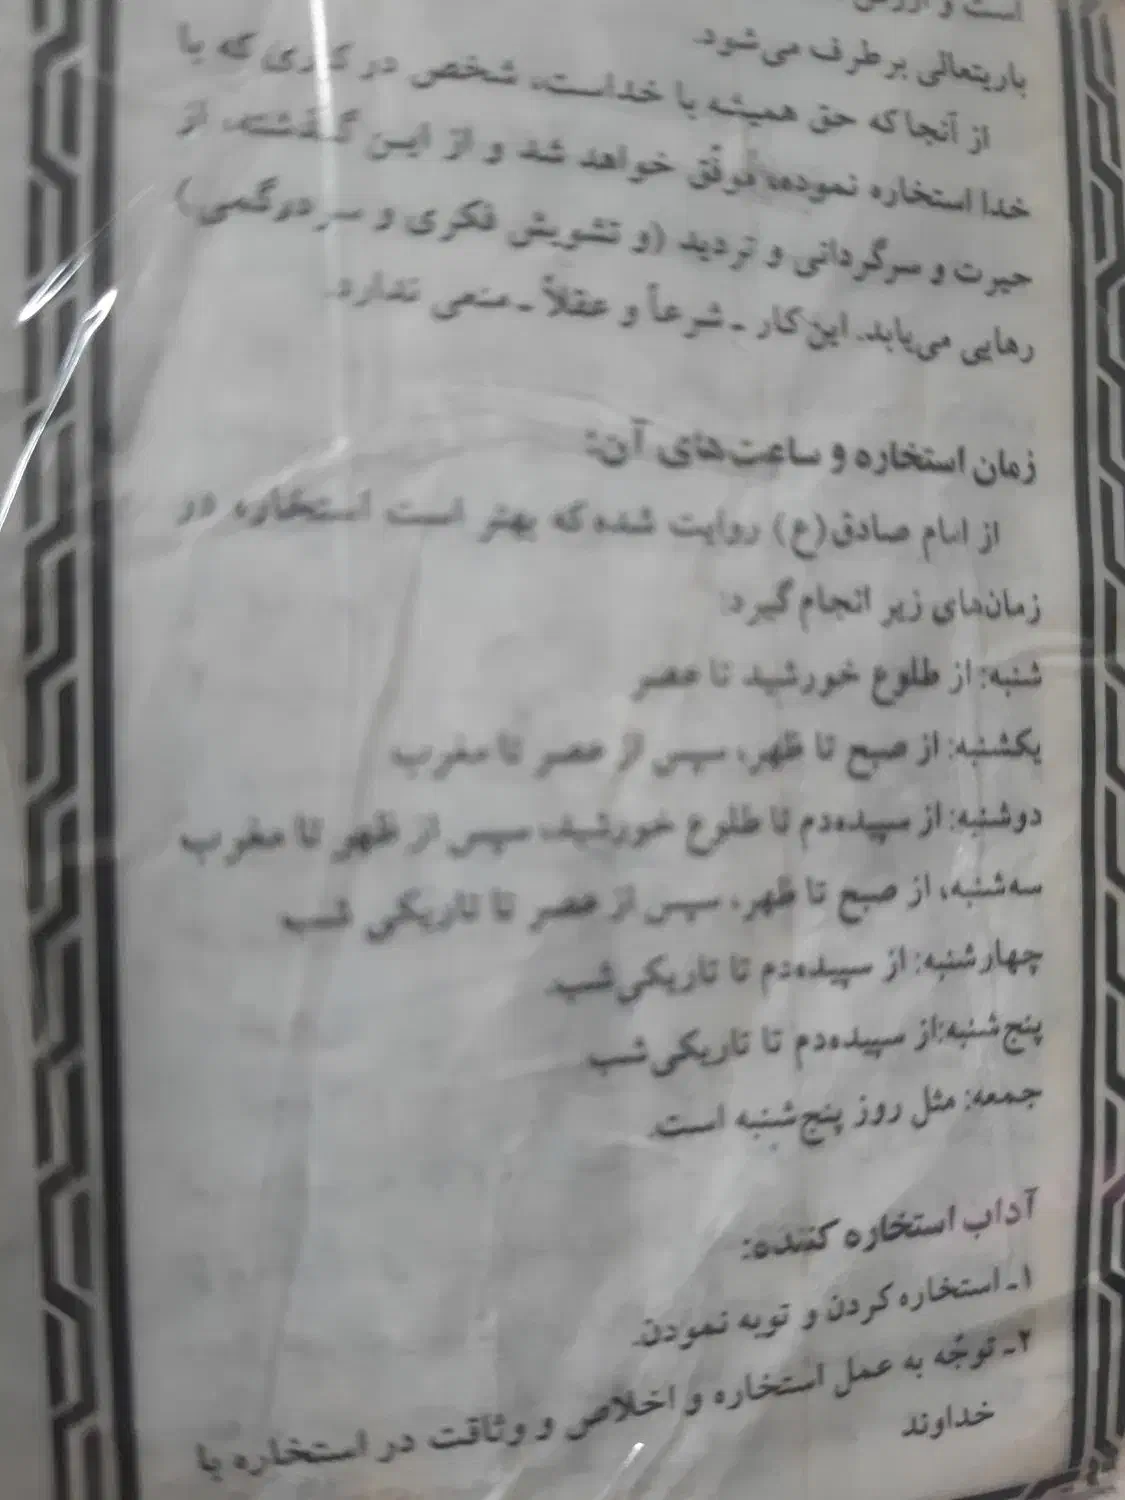 است و ارزش
باریتعالی برطرف می‌شود.
از آنجا که حق همیشه با خداست، شخص در کاری که با
خدا استخاره نموده، موفّق خواهد شد و از این گذشته، از
حیرت و سرگردانی و تردید (و تشویش فکری و سردرگمی)
رهایی می‌یابد. این کار ـ شرعاً و عقلاً ـ منعی ندارد.
زمان استخاره و ساعت‌های آن:
از امام صادق(ع) روایت شده که بهتر است استخاره در
زمان‌های زیر انجام گیرد:
شنبه: از طلوع خورشید تا عصر
یکشنبه: از صبح تا ظهر، سپس از عصر تا مغرب
دوشنبه: از سپیده‌دم تا طلوع خورشید، سپس از ظهر تا مغرب
سه‌شنبه، از صبح تا ظهر، سپس از عصر تا تاریکی شب
چهارشنبه: از سپیده‌دم تا تاریکی شب.
پنج‌شنبه: از سپیده‌دم تا تاریکی شب
جمعه: مثل روز پنج‌شنبه است.
آداب استخاره کننده:
۱ـ استخاره کردن و توبه نمودن.
۲ـ توجّه به عمل استخاره و اخلاص و وثاقت در استخاره با
خداوند